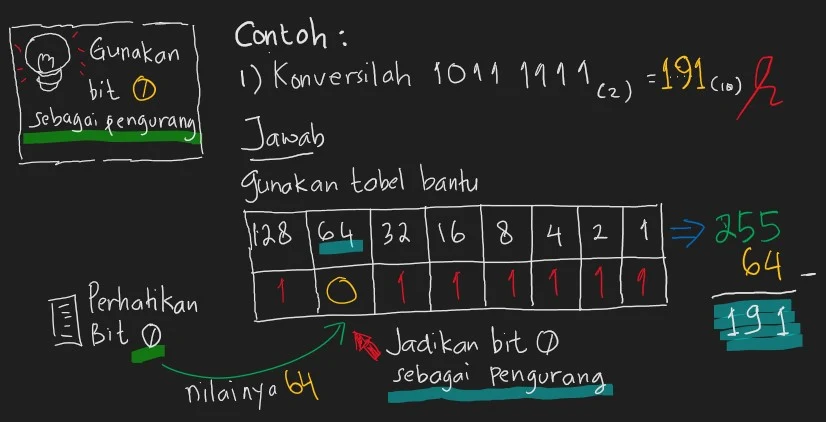 Gunakan
bit 0
sebagai pengurang
Contoh :
1) Konversilah 1011 1111 (2) = 191 (10)
Jawab
gunakan tabel bantu
128 64 32 16 8 4 2 1 ⇒ 255
1 0 1 1 1 1 1 1
64 -
191
Perhatikan
Bit 0
nilainya 64
Jadikan bit 0
sebagai pengurang